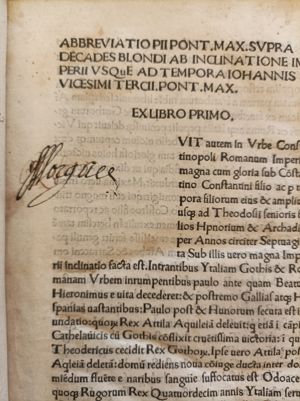 ABBREVIATIO PII PONT. MAX. SVPRA
DECADES BLONDI AB INCLINATIONE IM
PERII VSQuE AD TEMPORA IOHANNIS
VICESIMI TERCII. PONT. MAX.
EX LIBRO PRIMO.
VIT autem in Vrbe Cons
tinopoli Romanum Imperi
magna cum gloria sub Cōsta
tino Constantini filio ac p
tempora filiorum eius & ampli
usq ad Theodosii senioris
lios Hpnorium & Archadi
per Annos circiter Septuag
ta Sub illis uero magna Imp
rii inclinatio facta est. Intrantibus Ytaliam Gothis & Ro
manam Vrbem inrumpentibus paulo ante quam Beatu
Hieronimus e uita decederet: & postremo Gallias atq; H
spanias uastantibus: Paulo post & Hunorum secuta est i
undatio: quoꝝ Rex Attila Aquileiā deleuit: q etiā ī cāpi
Cathelaūicis cū Gothis cōflixit cruētissima uictoria: ī qua
Theodericus cecidit Rex Gothoꝝ. Ipse uero Attila post
Aqleiā deletā: domū rediens noua cōiuge ducta inter dor
miēdum fluēte e naribus sanguie suffocatus est Odoace
quoq Rugorum Rex Quatuordecim annis Ytaliam